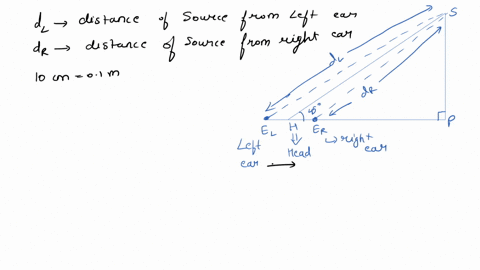 d_L → distance of Source from Left ear
d_R → distance of Source from right ear
10 cm = 0.1 m
S
d_L
d_R
45°
E_L H E_R P
Left ear
Head
right ear